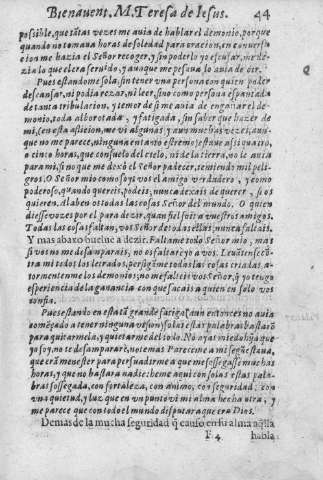 Bienauent. M. Teresa de Iesus. 44
possible, que tãtas vezes me auia de hablar el demonio, porque
quando no tomaua horas de soledad para oracion, en conuersa
cion me hazia el Señor recoger, y sin poderlo yo escusar, me de-
zia lo que el era seruido, y aunque me pesaua lo auia de oir.
Pues estandome sola, sin tener vna persona con quien poder
descansar, ni podia rezar, ni leer, sino como persona espantada
de tanta tribulacion, y temor de si me auia de engañar el de-
monio, toda alborotada, y fatigada, sin saber que hazer de
mi, (en esta aflicion, me vi algunas y aun muchas vezes, aun-
que no me parece, ninguna en tanto estremo) estuue assi quatro,
o cinco horas, que consuelo del cielo, ni de la tierra, no le auia
para mi, sino que me dexò el Señor padecer, temiendo mil peli-
gros. O Señor mio como soys vos el amigo verdadero, y como
poderoso, quando quereis, podeis; nunca dexais de querer, si os
quieren. Alaben os todas las cosas Señor del mundo. O quien
diesse vozes por el para dezir, quan fiel sois a vuestros amigos.
Todas las cosas faltan, vos Señor de todas ellas, nunca faltais.
Y mas abaxo buelue a dezir. Faltame todo Señor mio, mas
si vos no me desamparais, no os faltarè yo a vos. Leuãtense cõ
tra mi todos los letrados, persigãme todas las cosas criadas, a-
tormentenme los demonios; no me falteis vos Señor, q̃ yo tengo
esperiencia de la ganancia con que sacais a quien en solo vos
confia.
Pues estando en esta tã grande fatiga (aun entonces no auia
començado a tener ninguna vision) solas estas palabras bastarõ
para quitarmela, y quietarme del todo. No ayas miedo hija que
yo soy, no te desampararè, no temas. Pareceme a mi segũ estaua,
que era menester para persuadirme a que me sossegasse muchas
horas, y que no bastara nadie: heme aqui con solas estas pala-
bras sossegada, con fortaleza, con animo, con seguridad, con
vna quietud, y luz que en vn punto vi mi alma hecha otra, y
me parece que con todo el mundo disputara que era Dios.
Demas de la mucha seguridad q̃ causò en su alma aq̃lla
F 4 habla